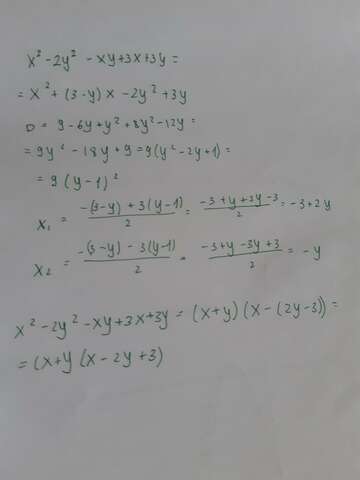 x² - 2y² - xy + 3x + 3y =
= x² + (3-y)x - 2y² + 3y
D = 9 - 6y + y² + 8y² - 12y =
= 9y² - 18y + 9 = 9(y² - 2y + 1) =
= 9(y-1)²
x₁ = -(3-y) + 3(y-1) / 2 = -3 + y + 3y - 3 / 2 = -3 + 2y
x₂ = -(3-y) - 3(y-1) / 2 = -3 + y - 3y + 3 / 2 = -y
x² - 2y² - xy + 3x + 3y = (x+y)(x - (2y-3)) =
= (x+y (x - 2y + 3)